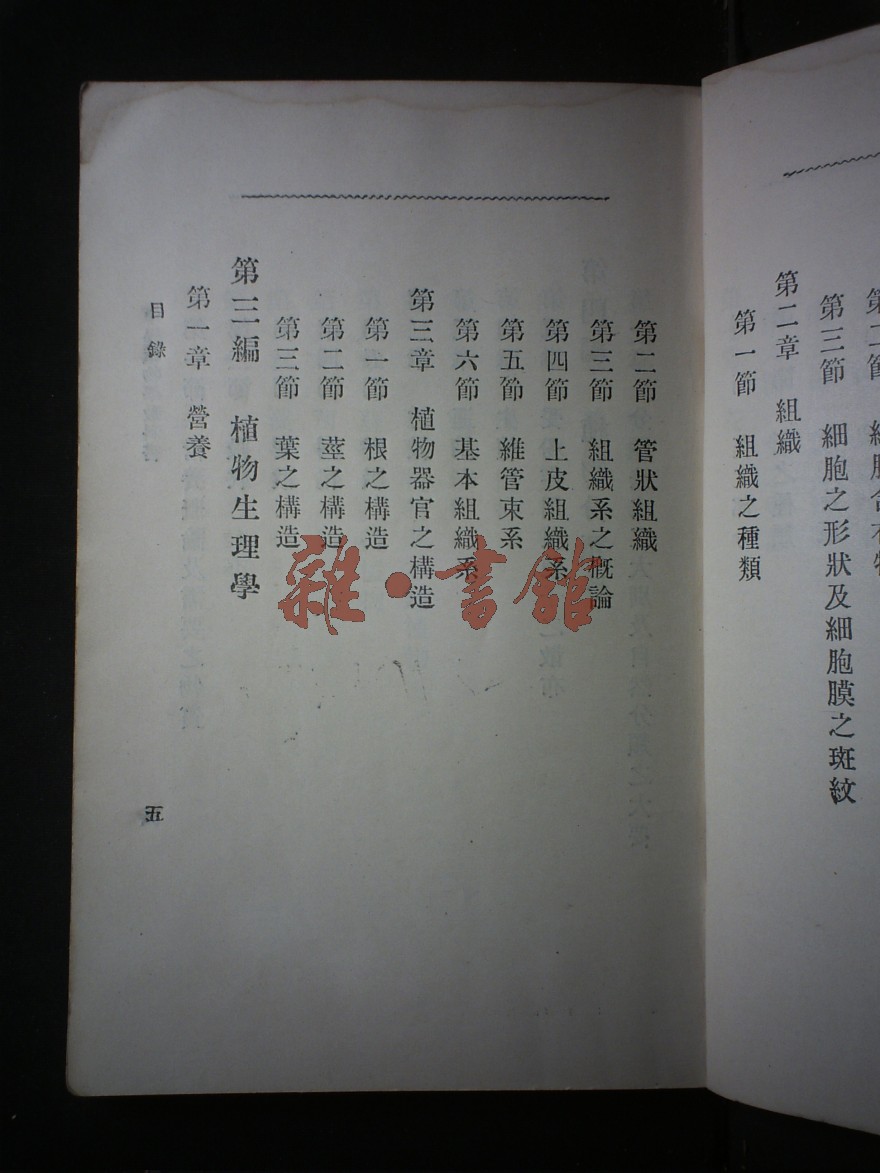 第三節 細胞之形狀及細胞膜之斑紋
第二章 組織
第一節 組織之種類
第二節 管狀組織
第三節 組織系之概論
第四節 上皮組織系
第五節 維管束系
第六節 基本組織系
第三章 植物器官之構造
第一節 根之構造
第二節 莖之構造
第三節 葉之構造
第三編 植物生理學
第一章 營養
目錄
五
雜·書館